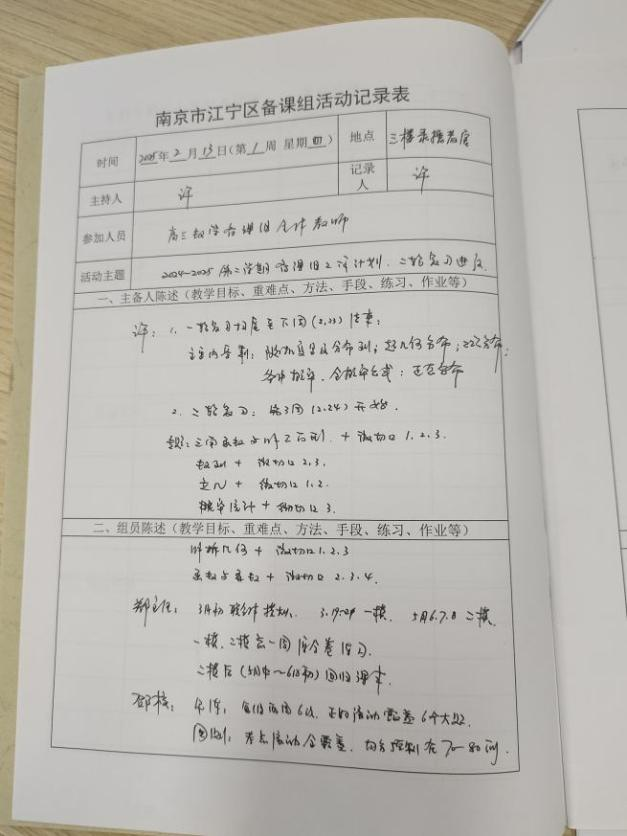 南京市江宁区备课组活动记录表
时间 2025年2月13日(第1周 星期四) 地点 三楼录播教室
主持人 许 记录人 许
参加人员 高三数学备课组全体教师
活动主题 2024~2025第二学期备课组工作计划、二轮复习进度
一、主备人陈述(教学目标、重难点、方法、手段、练习、作业等)
许:1. 一轮复习 至下周(2.23)结束;
主要内容: 随机变量及分布列;超几何分布;二项分布;
条件概率、全概率公式;正态分布
2. 二轮复习:第3周(2.24)开始.
三角函数与解三角形 + 微切口 1.2.3.
数列 + 微切口 2.3.
立几 + 微切口 1.2.
概率统计 + 微切口 3.
二、组员陈述(教学目标、重难点、方法、手段、练习、作业等)
解析几何 + 微切口 1.2.3
函数与导数 + 微切口 2.3.4.
郑主任: 3月初 模拟. 一模. 5月6.7.8 二模.
一模、二模 一周 综合卷练习.
二模后(5月中~6月初)回归课本.
每周两周6练. 覆盖6个大题.
周测: 考点 全覆盖. 均分控制在70~80